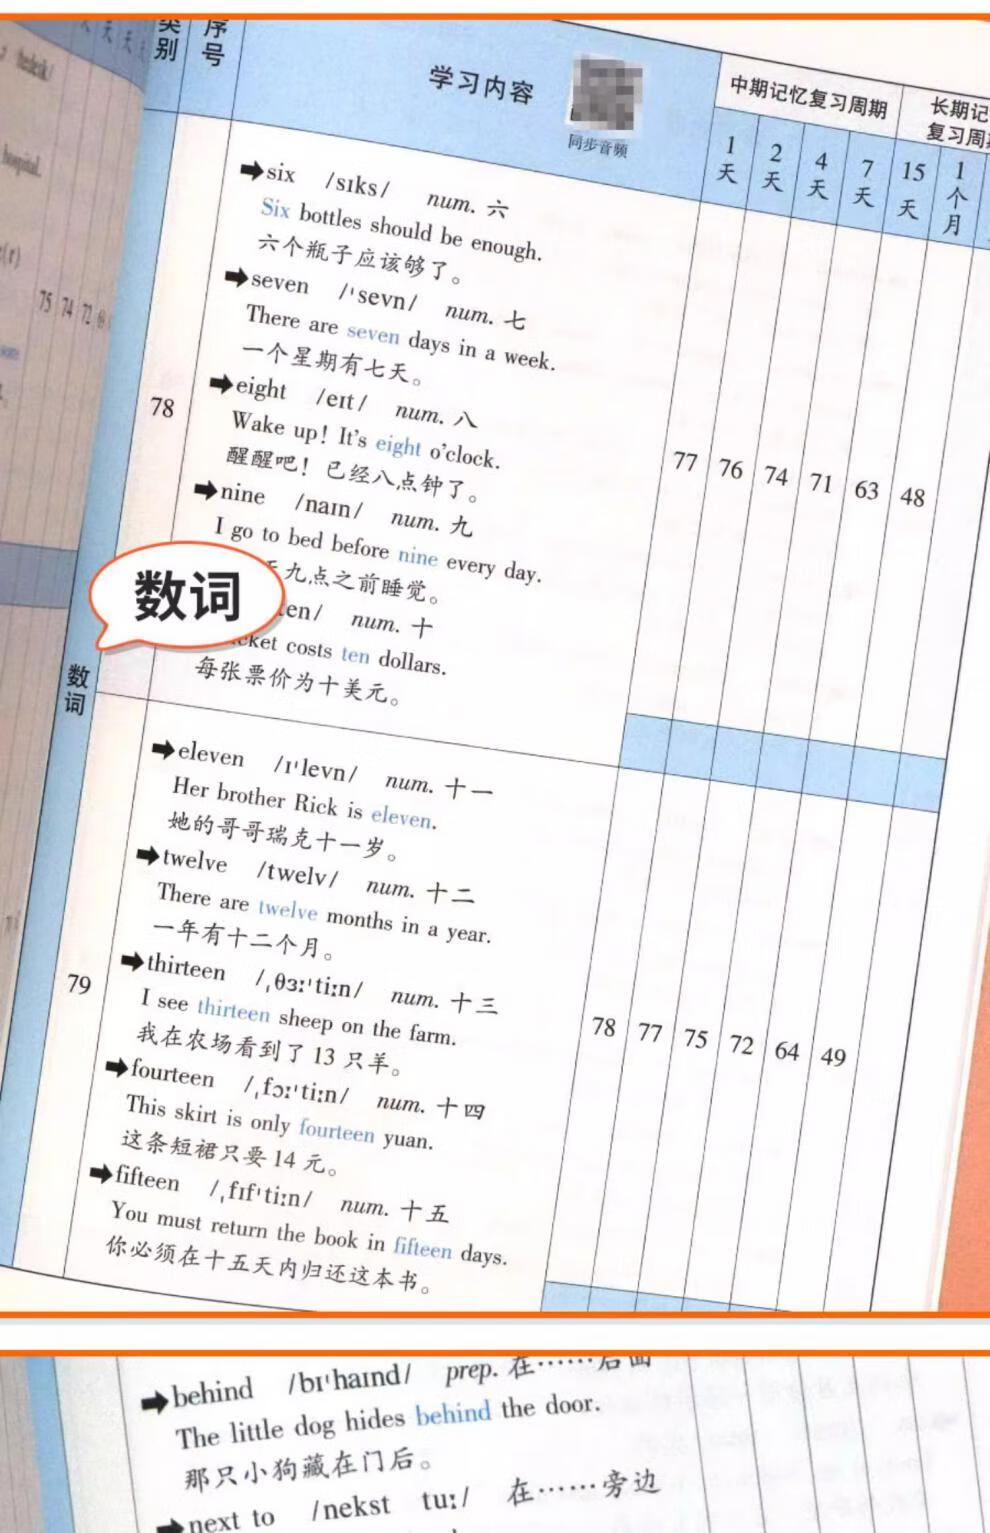 类别
序号
学习内容
同步音频
中期记忆复习周期
长期记
复习周
1天
2天
4天
7天
15天
1个月
hospital.
75 74 72
78
➡six /sɪks/ num. 六
Six bottles should be enough.
六个瓶子应该够了。
➡seven /ˈsevn/ num. 七
There are seven days in a week.
一个星期有七天。
➡eight /eɪt/ num. 八
Wake up! It's eight o'clock.
醒醒吧！已经八点钟了。
➡nine /naɪn/ num. 九
I go to bed before nine every day.
九点之前睡觉。
ten/ num. 十
costs ten dollars.
每张票价为十美元。
77 76 74 71 63 48
数词
数词
79
➡eleven /ɪˈlevn/ num. 十一
Her brother Rick is eleven.
她的哥哥瑞克十一岁。
➡twelve /twelv/ num. 十二
There are twelve months in a year.
一年有十二个月。
➡thirteen /ˌθɜːˈtiːn/ num. 十三
I see thirteen sheep on the farm.
我在农场看到了 13 只羊。
➡fourteen /ˌfɔːˈtiːn/ num. 十四
This skirt is only fourteen yuan.
这条短裙只要 14 元。
➡fifteen /ˌfɪfˈtiːn/ num. 十五
You must return the book in fifteen days.
你必须在十五天内归还这本书。
78 77 75 72 64 49
➡behind /bɪˈhaɪnd/ prep. 在……后面
The little dog hides behind the door.
那只小狗藏在门后。
➡next to /nekst tuː/ 在……旁边